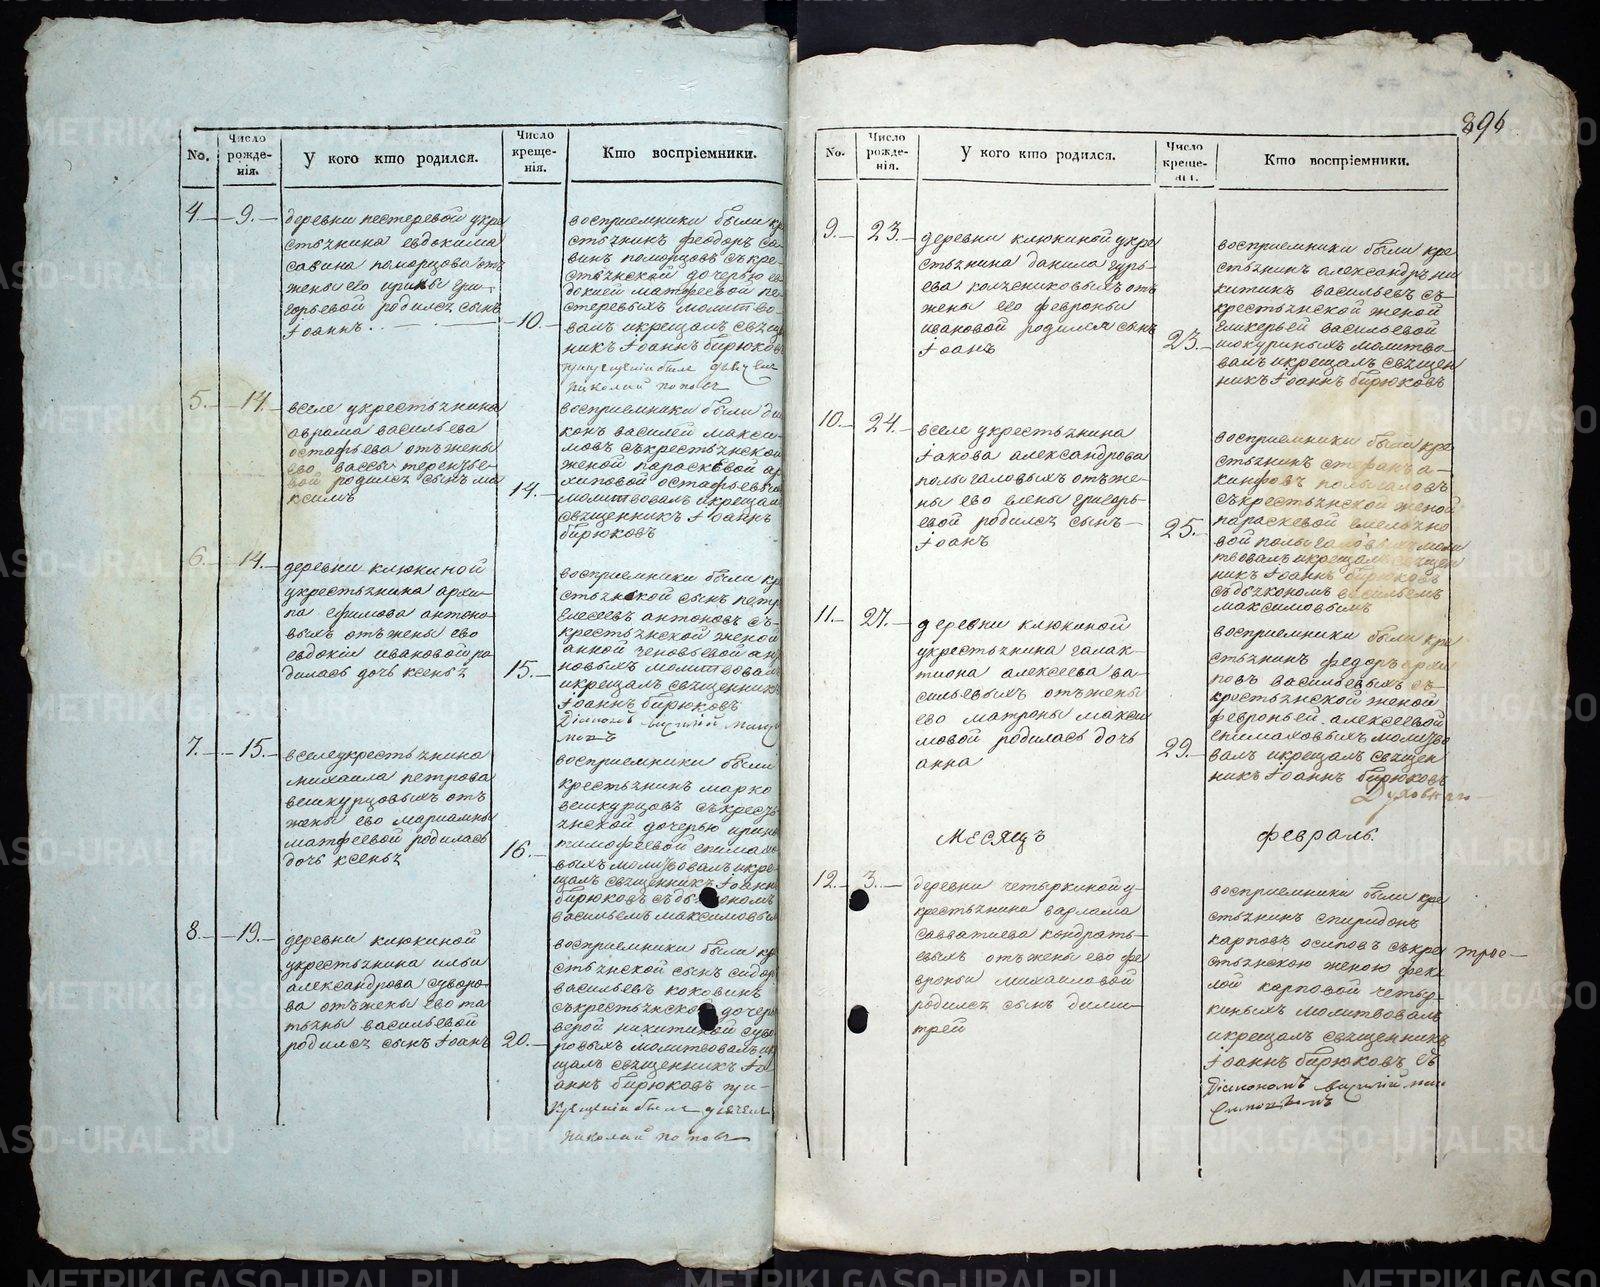 896
No.
Число рожде-нія.
У кого кто родился.
Число креще-нія.
Кто воспріемники.
4. 9.
деревни пестеревой укре
стьянина евдокима
савина поморцова отъ
жены его ирины гри
горьевой родился сынъ
Іоаннъ.
10.
восприемники были кр
стьянинъ феодоръ са
винъ поморцовъ съкре
стьянской дочерью ев
докией матфеевой пе
стеревыхъ молитво
валъ икрещалъ свящ
никъ Іоаннъ бирюковъ
николай поповъ
5. 14.
вселе укрестьянина
аврама васильева
остафьева отъжены
его вассы терентье
вой родился сынъ ма
ксимъ
14.
восприемники были дь
конъ василей макси
мовъ съкрестьянской
женой параскевой ар
хиповой остафьевы
молитвовалъ икрещал
священникъ Іоаннъ
бирюковъ
6. 14.
деревни клюкиной
укрестьянина архи
па ефимова антоно
выхъ отъжены его
евдокии ивановой ро
дилась дочь ксенья
15.
восприемники были кр
стьянской сынъ петр
елесеевъ антоновъ съ
крестьянской женой
анной
новыхъ молитвовалъ
икрещалъ священникъ
Іоаннъ бирюковъ
7. 15.
вселеукрестьянина
михаила петрова
великурцовыхъ отъ
жены его мариамны
матфеевой родилась
дочь ксенья
16.
восприемники были
крестьянинъ марко
великурцовъ съкресть
янской дочерью ирин
тимофеевой
выхъ молитвовалъ икре
щалъ священникъ Іоанн
бирюковъ съдьякономъ
васильемъ максимовы
8. 19.
деревни клюкиной
укрестьянина ильи
александрова суворо
ва отъжены его та
тьяны васильевой
родился сынъ Іоанъ
20.
восприемники были кр
стьянской сынъ сидор
васильевъ коковинъ
съкрестьянской дочер
верой никитиной суво
ровыхъ молитвовалъ ик
щалъ священникъ Іо
аннъ бирюковъ при
крещеніи былъ
николай поповъ
No.
Число рожде-нія.
У кого кто родился.
Число креще-нія.
Кто воспріемники.
9. 23.
деревни клюкиной укре
стьянина данила гурь
ева колчениковыхъ отъ
жены его февроньи
ивановой родился сынъ
Іоанъ
23.
восприемники были кре
стьянинъ александръ ни
китинъ васильевъ съ
крестьянской женой
гликерьей васильевой
молитво
валъ икрещалъ священ
никъ Іоаннъ бирюковъ
10. 24.
вселе укрестьянина
Іакова александрова
полыгаловыхъ отъже
ны его елены григорь
евой родился сынъ
Іоанъ
25.
восприемники были кре
стьянинъ стефанъ а
кинфовъ полыгаловъ
съкрестьянской женой
параскевой емельяно
вой полыгаловыхъ моли
твовалъ икрещалъ священ
никъ Іоаннъ бирюковъ
съдьякономъ васильемъ
максимовымъ
11. 27.
деревни клюкиной
укрестьянина галак
тиона алексеева ва
сильевыхъ отъжены
его матроны макси
мовой родилась дочь
анна
29.
восприемники были кре
стьянинъ федоръ архи
повъ васильевыхъ съ
крестьянской женой
февроньей алексеевой
молитво
валъ икрещалъ священ
никъ Іоаннъ бирюковъ
Духовнаго
МЕСЯЦЪ
февраль.
12. 3.
деревни четыркиной у
крестьянина варлама
савватиева кондрать
евыхъ отъжены его фе
вроньи михаиловой
родился сынъ дими
трей
восприемники были кре
стьянинъ спиридонъ
карповъ осиповъ съкре
стьянскою женою фек
лой карповой четыр
киныхъ молитвовалъ
икрещалъ священникъ
Іоаннъ бирюковъ съ
Діакономъ
трое